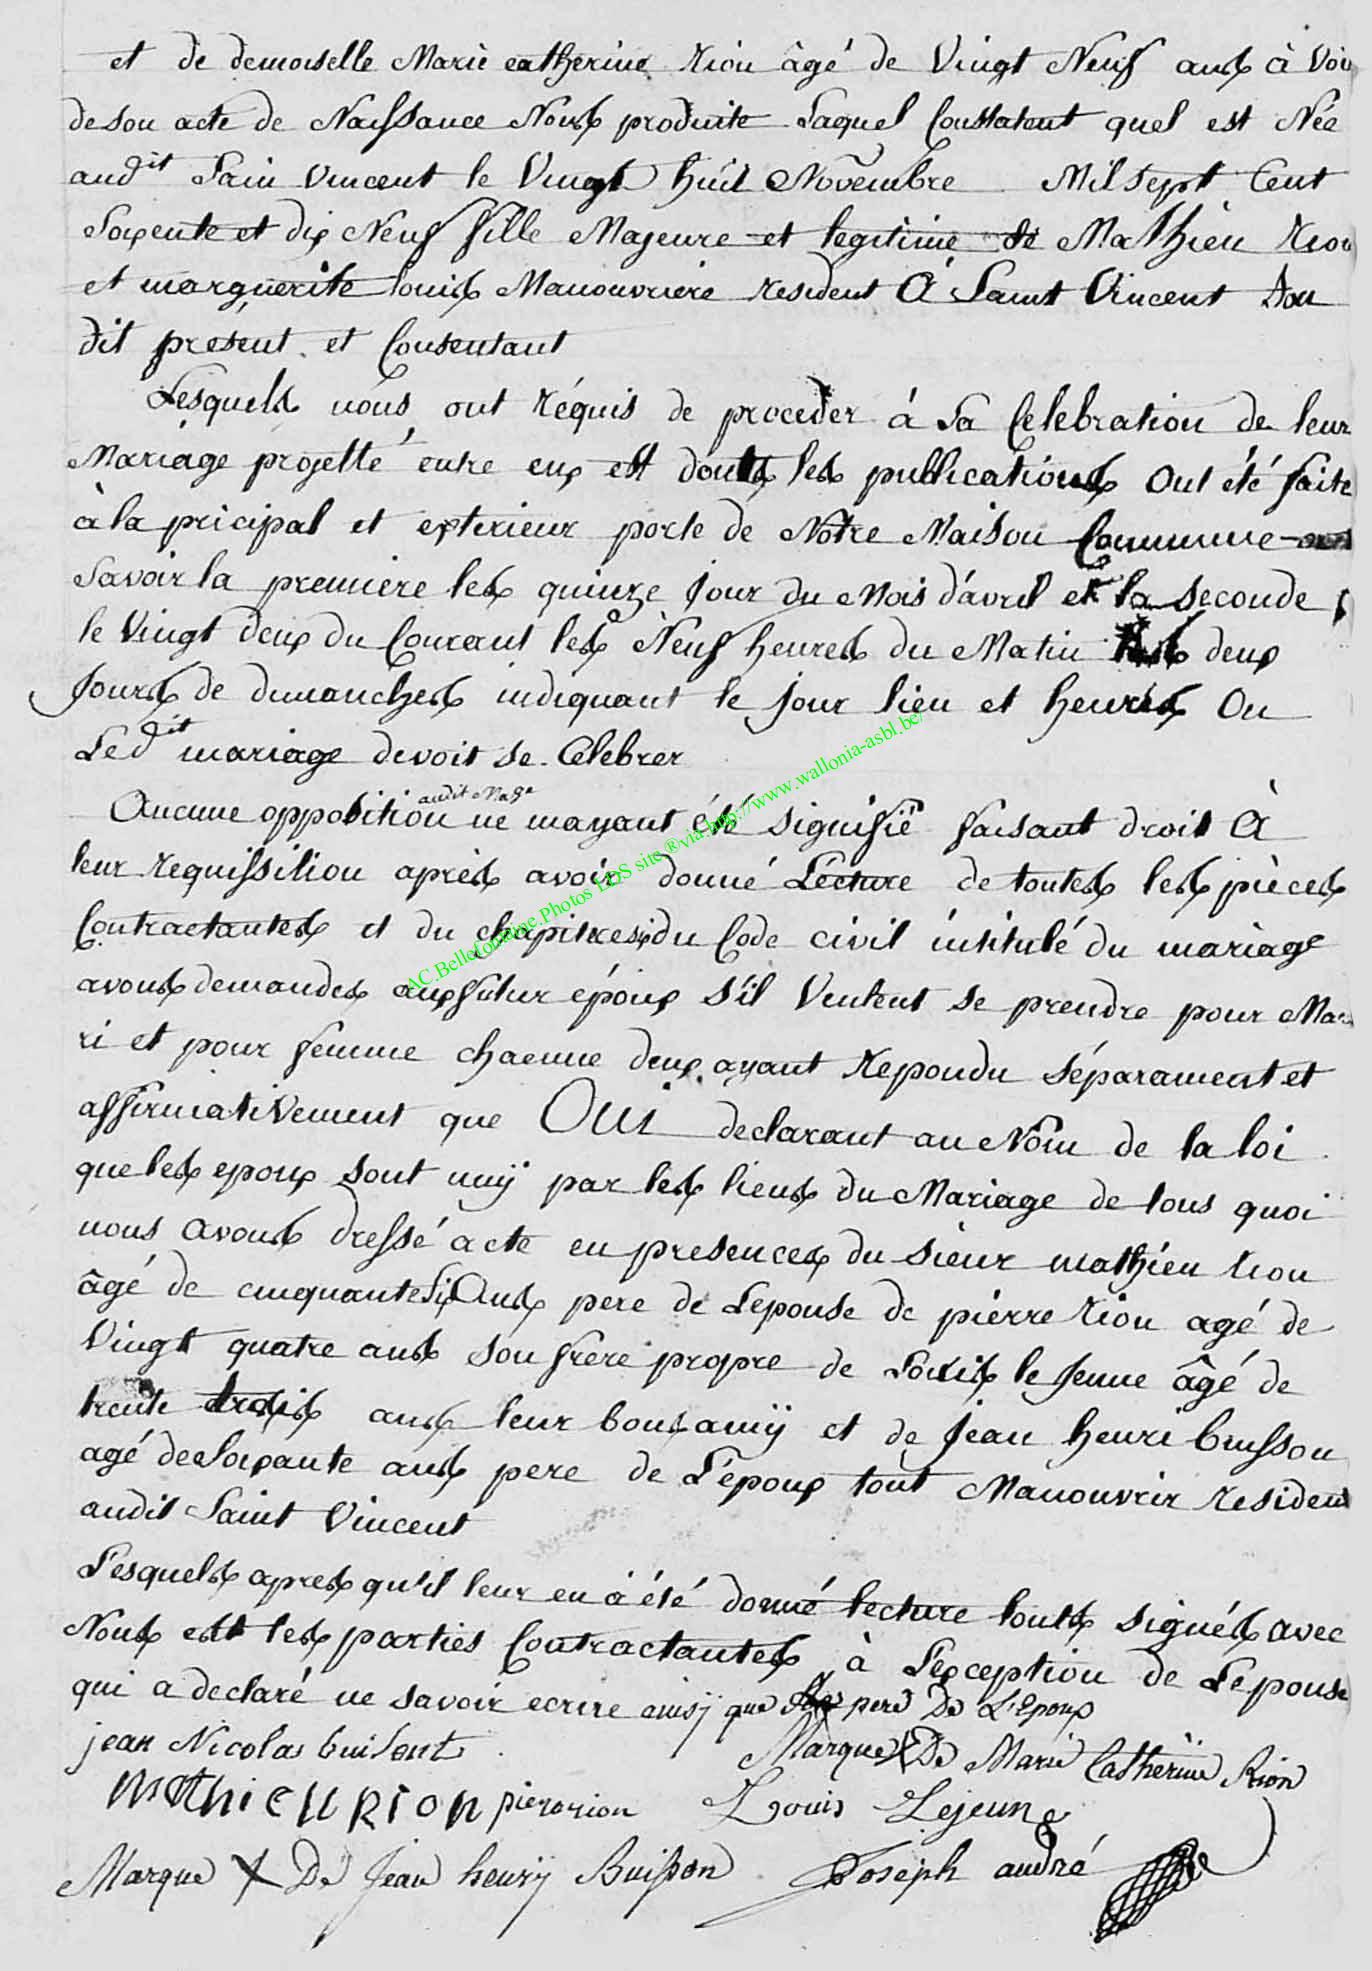 et de demoiselle Marie catherine Riou âgé de Vingt Neuf ans à Voir
de son acte de Naissance Nous produite Laquel Constatent quel est Née
audit Sain Vincent le Vingt huit Novembre Mil Sept Cent
Soixente et dix Neuf fille Majeure et legitime de Mathieu Riou
et marguerite louis Manouvriere resident à Saint Vincent Sou
dit présent et Consentant
Lesquels nous ont réquis de proceder à La Celebration de leur
Mariage projetté entre eux est donts les publications Ont été faite
à la pricipal et exterieur porte de Notre Maison Commune
Savoir la premiere les quinze Jour du Mois d'avril et la seconde
le Vingt deux du Courant les Neuf heures du Matin les deux
Jours de dimanches indiquant le jour lieu et heures Ou
Ledit mariage devoit se Celebrer
audit Mage
Aucune opposition ne mayant été signifié faisant droit À
leur requissition après avoir donné Lécture de toutes les pièces
Contractantes et du chapitre six du Code civil intitulé du mariage
avons demandes aux futur époux S'il Veutent se prendre pour Ma
ri et pour femme chacune deux ayant Repondu séparament et
affirmativement que Oui declarant au Nom de la loi
que les epoux sont unÿ par les liens du Mariage de tous quoi
nous avons dressé acte en presences du sieur mathieu riou
âgé de cinquante Six Ans pere de Lepouse de pierre riou agé de
Vingt quatre ans son frere propre de Louis le Jeune âgé de
trente trois ans leur bons amÿ et de Jean henri buisson
agé de Soixante ans pere de L'époux tout Manouvrir resident
audit Saint Vincent
Lesquels apres qu'il leur en à été donné lecture touts signés avec
Nous est les parties Contractantes à L'exception de Lépouse
qui a declaré ne savoir ecrire ainsj que le pere De L'Epoux
jean Nicolas buisont Marque X De Marie Catherine Rion
mathieu RION pierorion Louis Lejeune
Marque X De Jean henrÿ Buisson Joseph andré
AC.Bellefontaine.Photos LDS site ®via.http://www.wallonia-asbl.be/